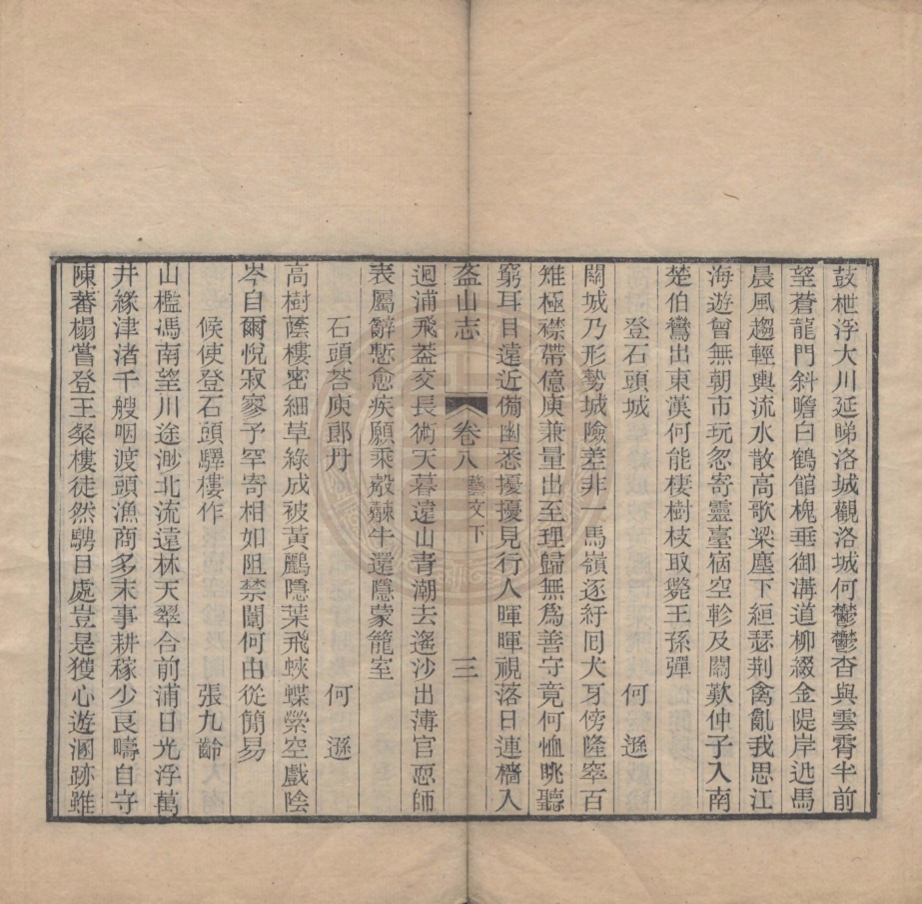 鼓枻浮大川延睇洛城觀洛城何鬱鬱杳與雲霄半前
望蒼龍門斜瞻白鶴館槐垂御溝道柳綴金隄岸迅馬
晨風趨輕輿流水散高歌梁塵下絙瑟荆禽亂我思江
海遊曾無朝市玩忽寄靈臺宿空軫及關歎仲子入南
楚伯鸞出東漢何能棲樹枝取斃王孫彈
登石頭城 何遜
關城乃形勢城險差非一馬嶺逐紆囘犬牙傍隆窣百
雉極襟帶億庾兼量出至理歸無爲善守竟何恤眺聽
窮耳目遠近備幽悉擾擾見行人暉暉視落日連檣入
盋山志 卷八 藝文下 三
迴浦飛葢交長術天暮遠山青潮去遙沙出薄官恧師
表屬辭慙愈疾願乘觳觫牛還隱蒙籠室
石頭荅庾郎丹 何遜
高樹蔭樓密細草綠成被黃鸝隱葉飛蛺蝶縈空戲陰
岑自爾悅寂寥予罕寄相如阻禁闈何由從簡易
候使登石頭驛樓作 張九齡
山檻馮南望川途渺北流遠林天翠合前浦日光浮萬
井緣津渚千艘咽渡頭漁商多末事耕稼少良疇自守
陳蕃榻嘗登王粲樓徒然騁目處豈是獲心遊溷跡雖